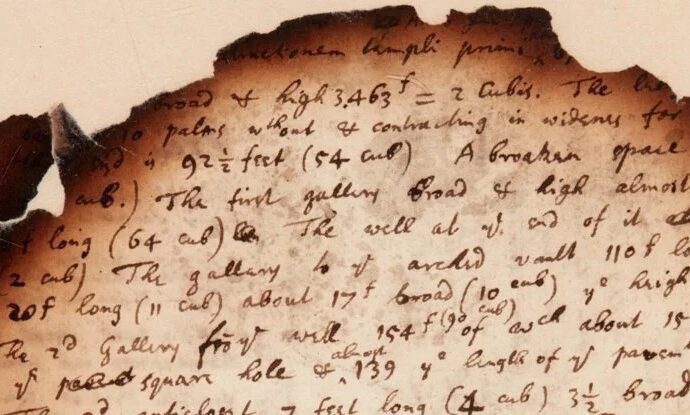 templi primi
road & high 3.463f = 2 Cubis. The
palms wthout & contracting in widenes for
end is 92 1/2 feet (54 cub) A broaken space
cub.) The first gallery broad & high almost
f long (64 cub) The well at ye. end of it
2 cub) The gallery to ye arched vault 110f lo
20f long (11 cub) about 17f broad (10 cub) ye heigh
The 2d Gallery frō ye well 154f (90 cub) of wch about 15
ye square hole & almost 139 ye length of ye pavem
7 feet long (4 cub) 3 1/2 broad